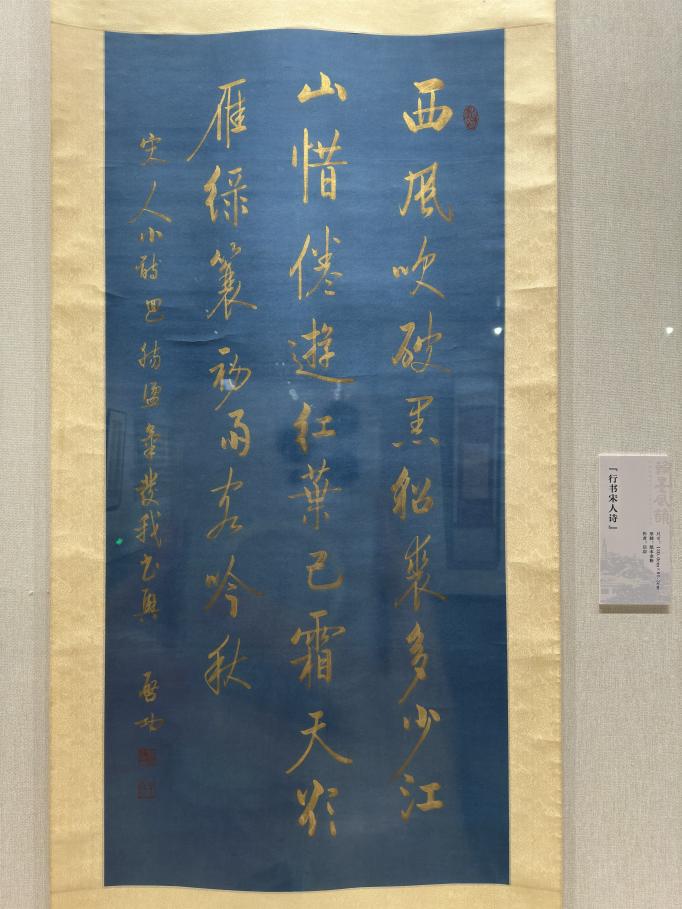 西風吹破黑貂裘多少江
山惜倦遊紅葉已霜天欲
雁綠蓑初雨客吟秋
宋人小詩發我书興
啟功
『行书宋人诗』
作者：启功